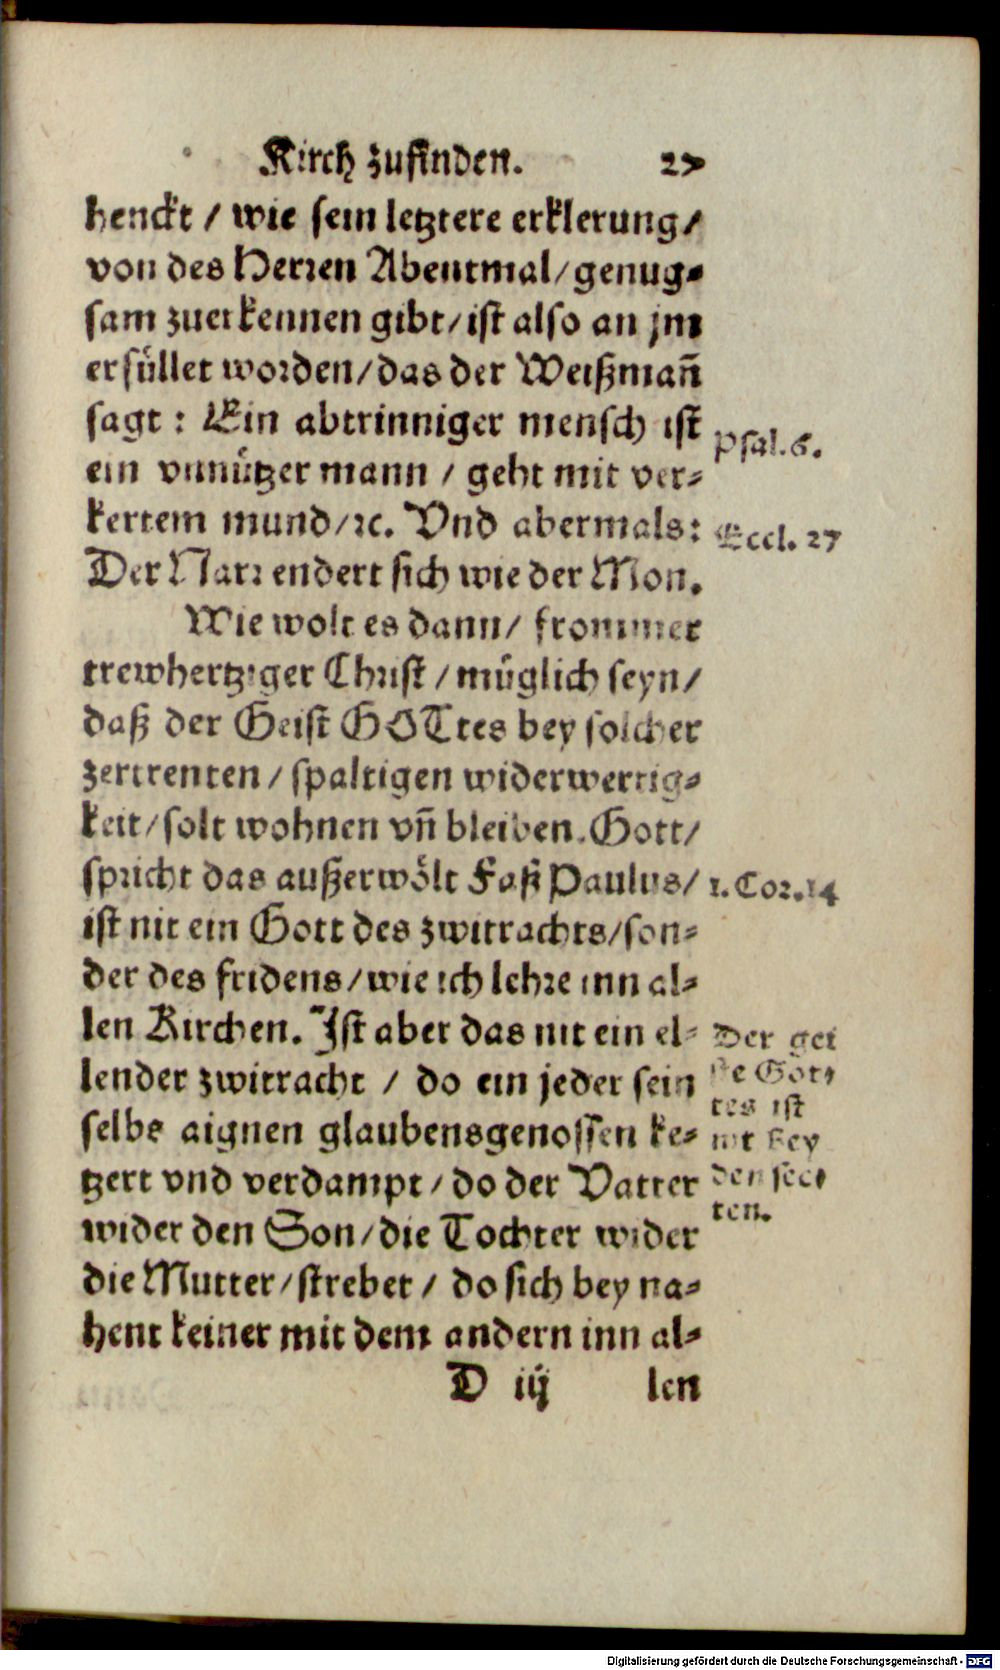 Kirch zufinden. 27
henckt / wie sein letztere erklerung/
von des Herren Abentmal/genug-
sam zuerkennen gibt/ist also an jm
erfüllet worden/das der Weißmañ
sagt: Ein abtrinniger mensch ist
ein vnnützer mann / geht mit ver-
kertem mund/ꝛc. Vnd abermals:
Der Narr endert sich wie der Mon.
Wie wolt es dann/ frommer
trewhertziger Christ / müglich seyn/
daß der Geist GOTtes bey solcher
zertrenten / spaltigen widerwertig-
keit/solt wohnen vñ bleiben. Gott/
spricht das außerwölt Faß Paulus/
ist nit ein Gott des zwitrachts/son-
der des fridens/wie ich lehre inn al-
len Kirchen. Ist aber das nit ein el-
lender zwitracht / do ein jeder sein
selbs aignen glaubensgenossen ke-
tzert vnd verdampt / do der Vatter
wider den Son/die Tochter wider
die Mutter/strebet / do sich bey na-
hent keiner mit dem andern inn al-
D iij len
Psal. 6.
Eccl. 27
1. Cor. 14
Der gei
ste Got-
tes ist
nit bey
den sec-
ten.
Digitalisierung gefördert durch die Deutsche Forschungsgemeinschaft - DFG